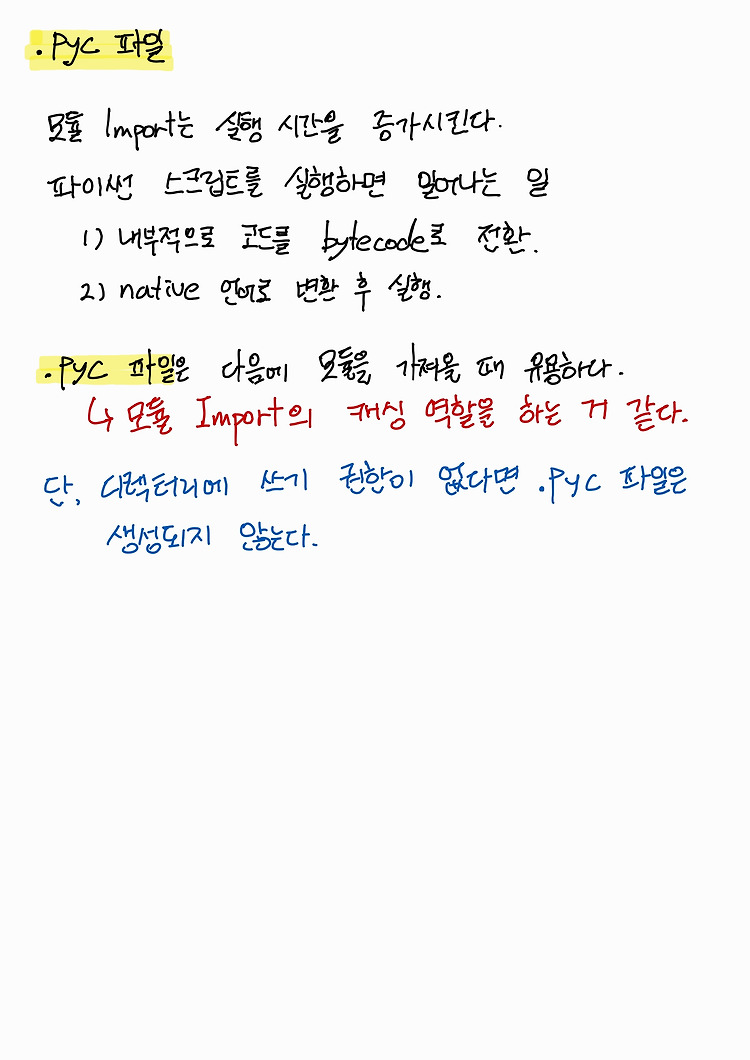 .pyc 파일
모듈 Import는 실행 시간을 증가시킨다.
파이썬 스크립트를 실행하면 일어나는 일
1) 내부적으로 코드를 bytecode로 전환.
2) native 언어로 변환 후 실행.
.pyc 파일은 다음에 모듈을 가져올 때 유용하다.
↳ 모듈 Import의 캐싱 역할을 하는 거 같다.
단, 디렉터리에 쓰기 권한이 없다면 .pyc 파일은
생성되지 않는다.